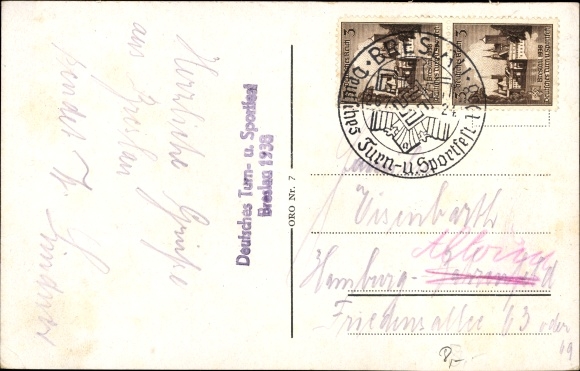 Herzliche Grüße
aus Breslau
sendet
Deutsches Turn- u. Sportfest
Breslau 1938
ORO Nr. 7
3
Deutsches Reich
Breslau 1938
Deutsches Turn-u. Sportfest
3
Deutsches Reich
Breslau 1938
Deutsches Turn-u. Sportfest
BRESLAU
Deutsches Turn-u. Sportfest 1938
Eisenbarth
Hamburg-
Friedensallee 63 oder
69
8,-